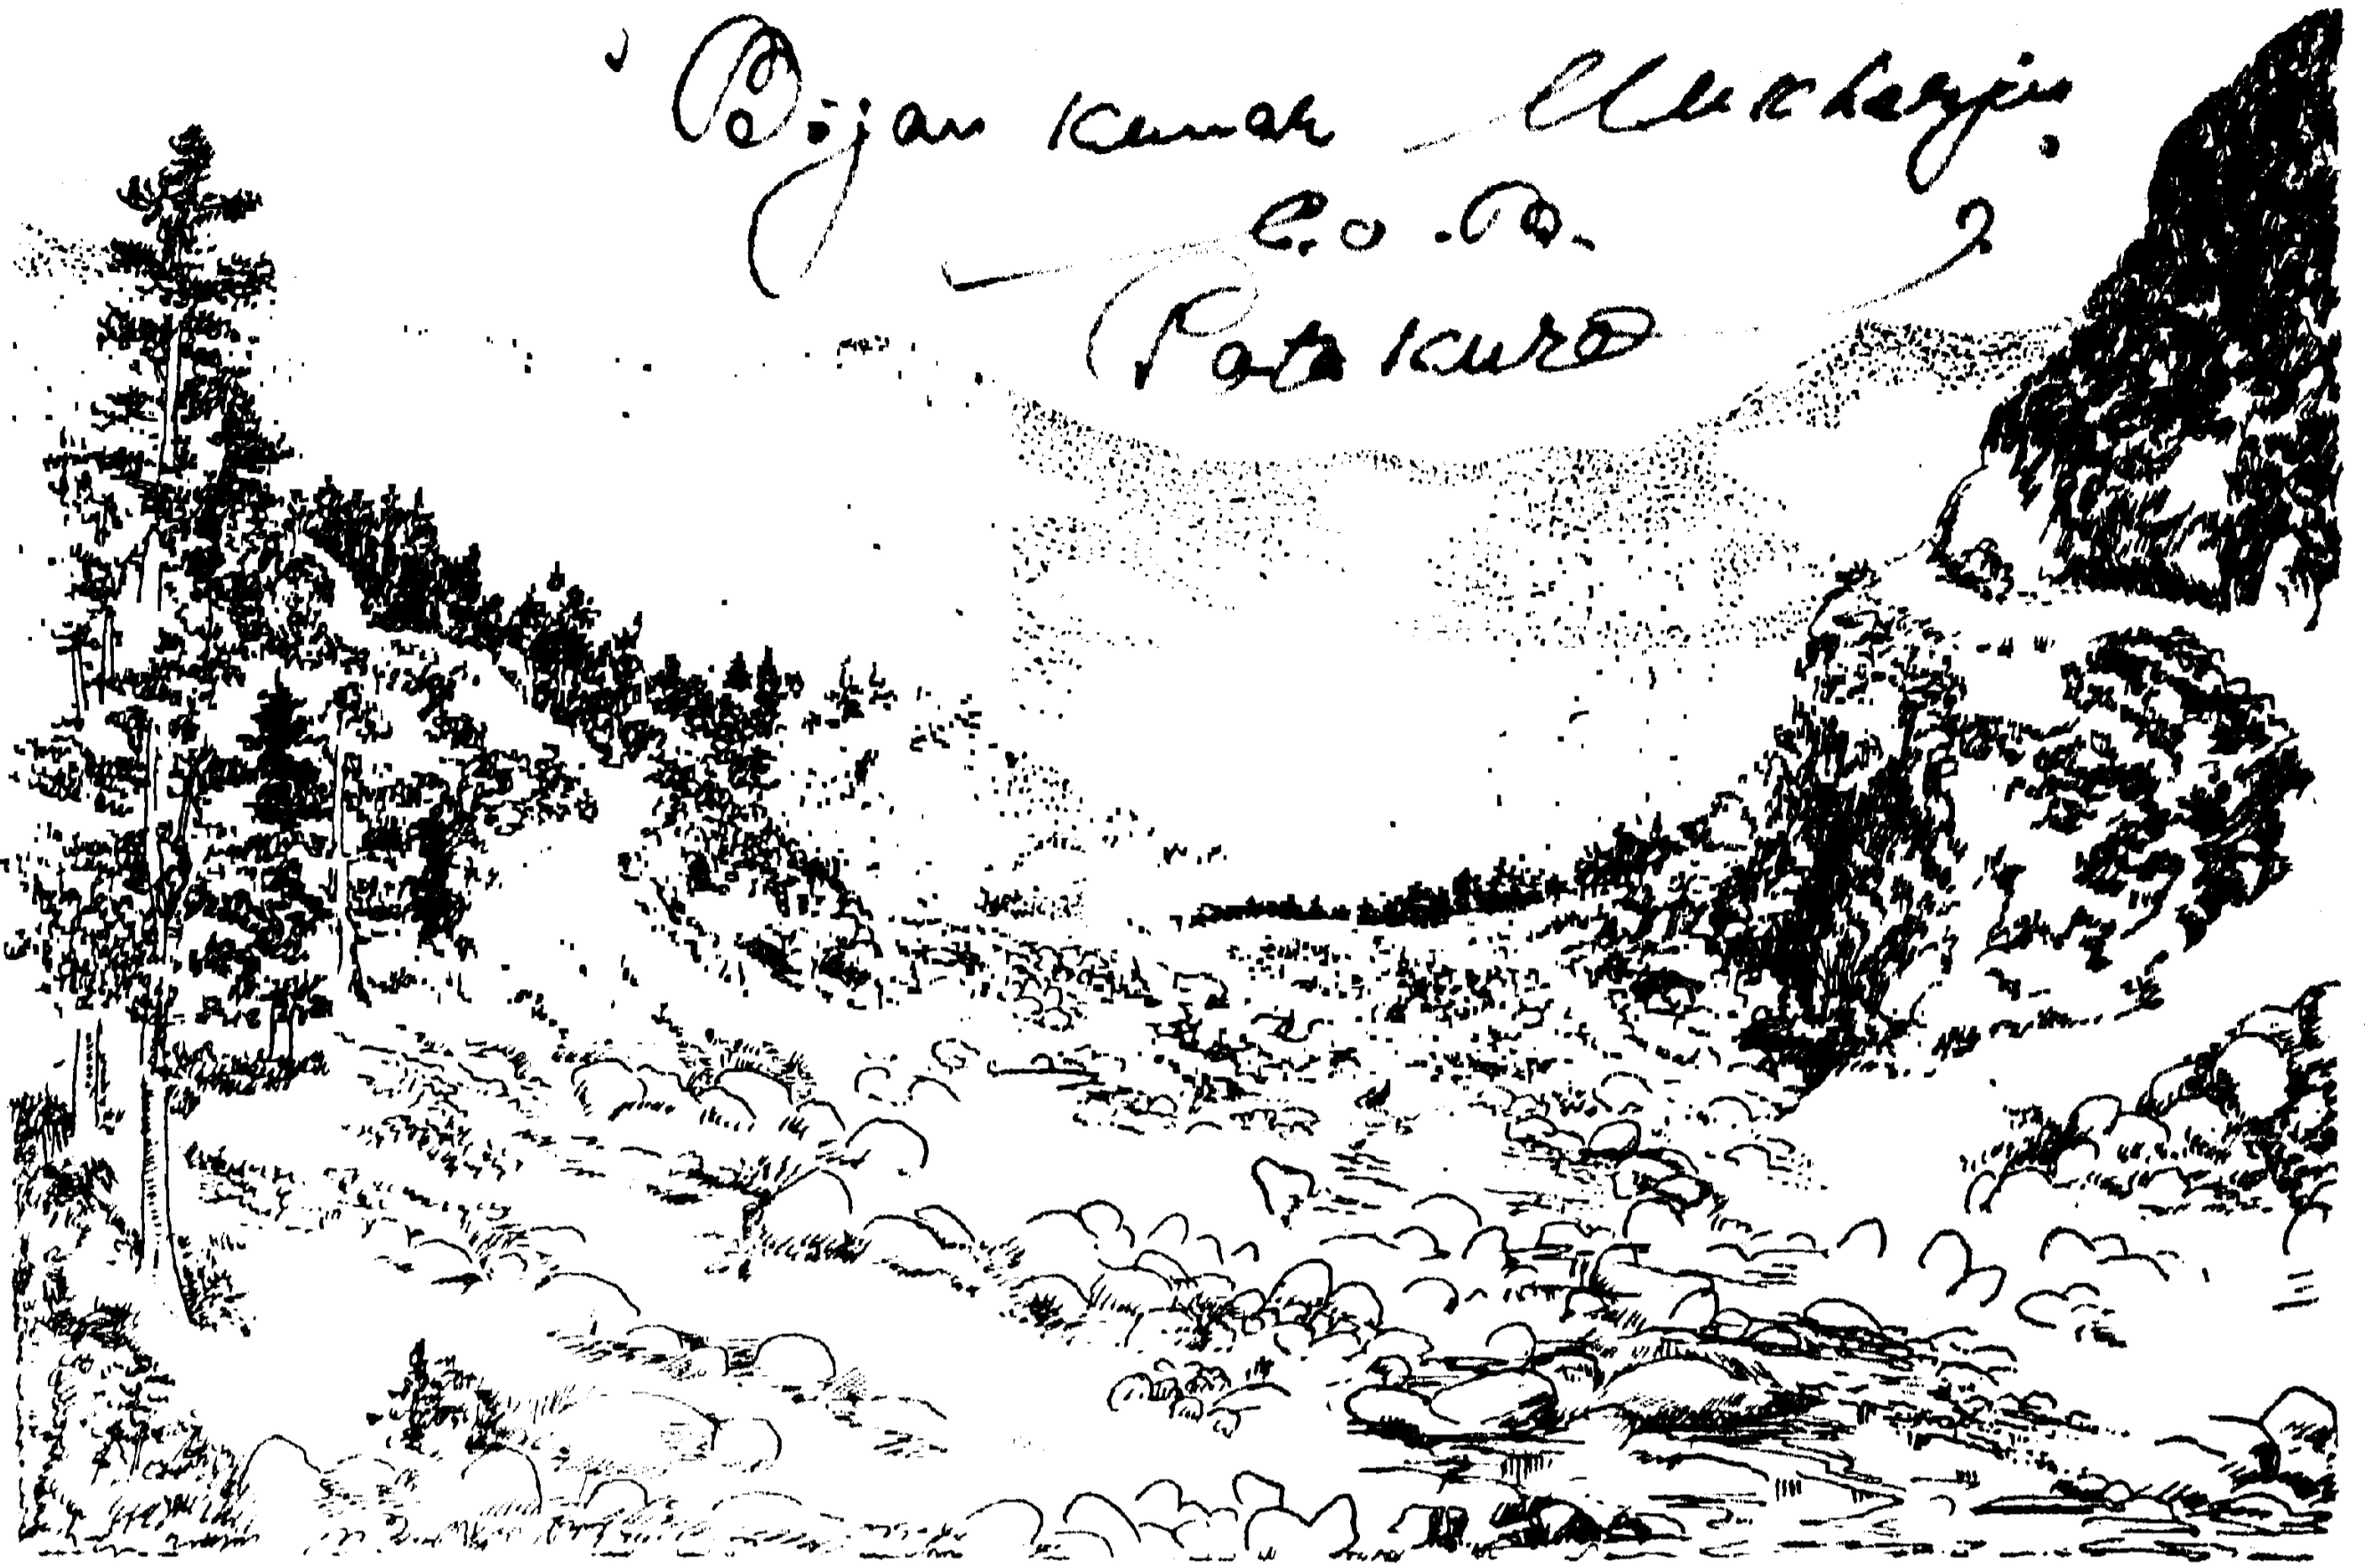 Bijan Kumar Mukherjee.
C.O.D.
Patakura